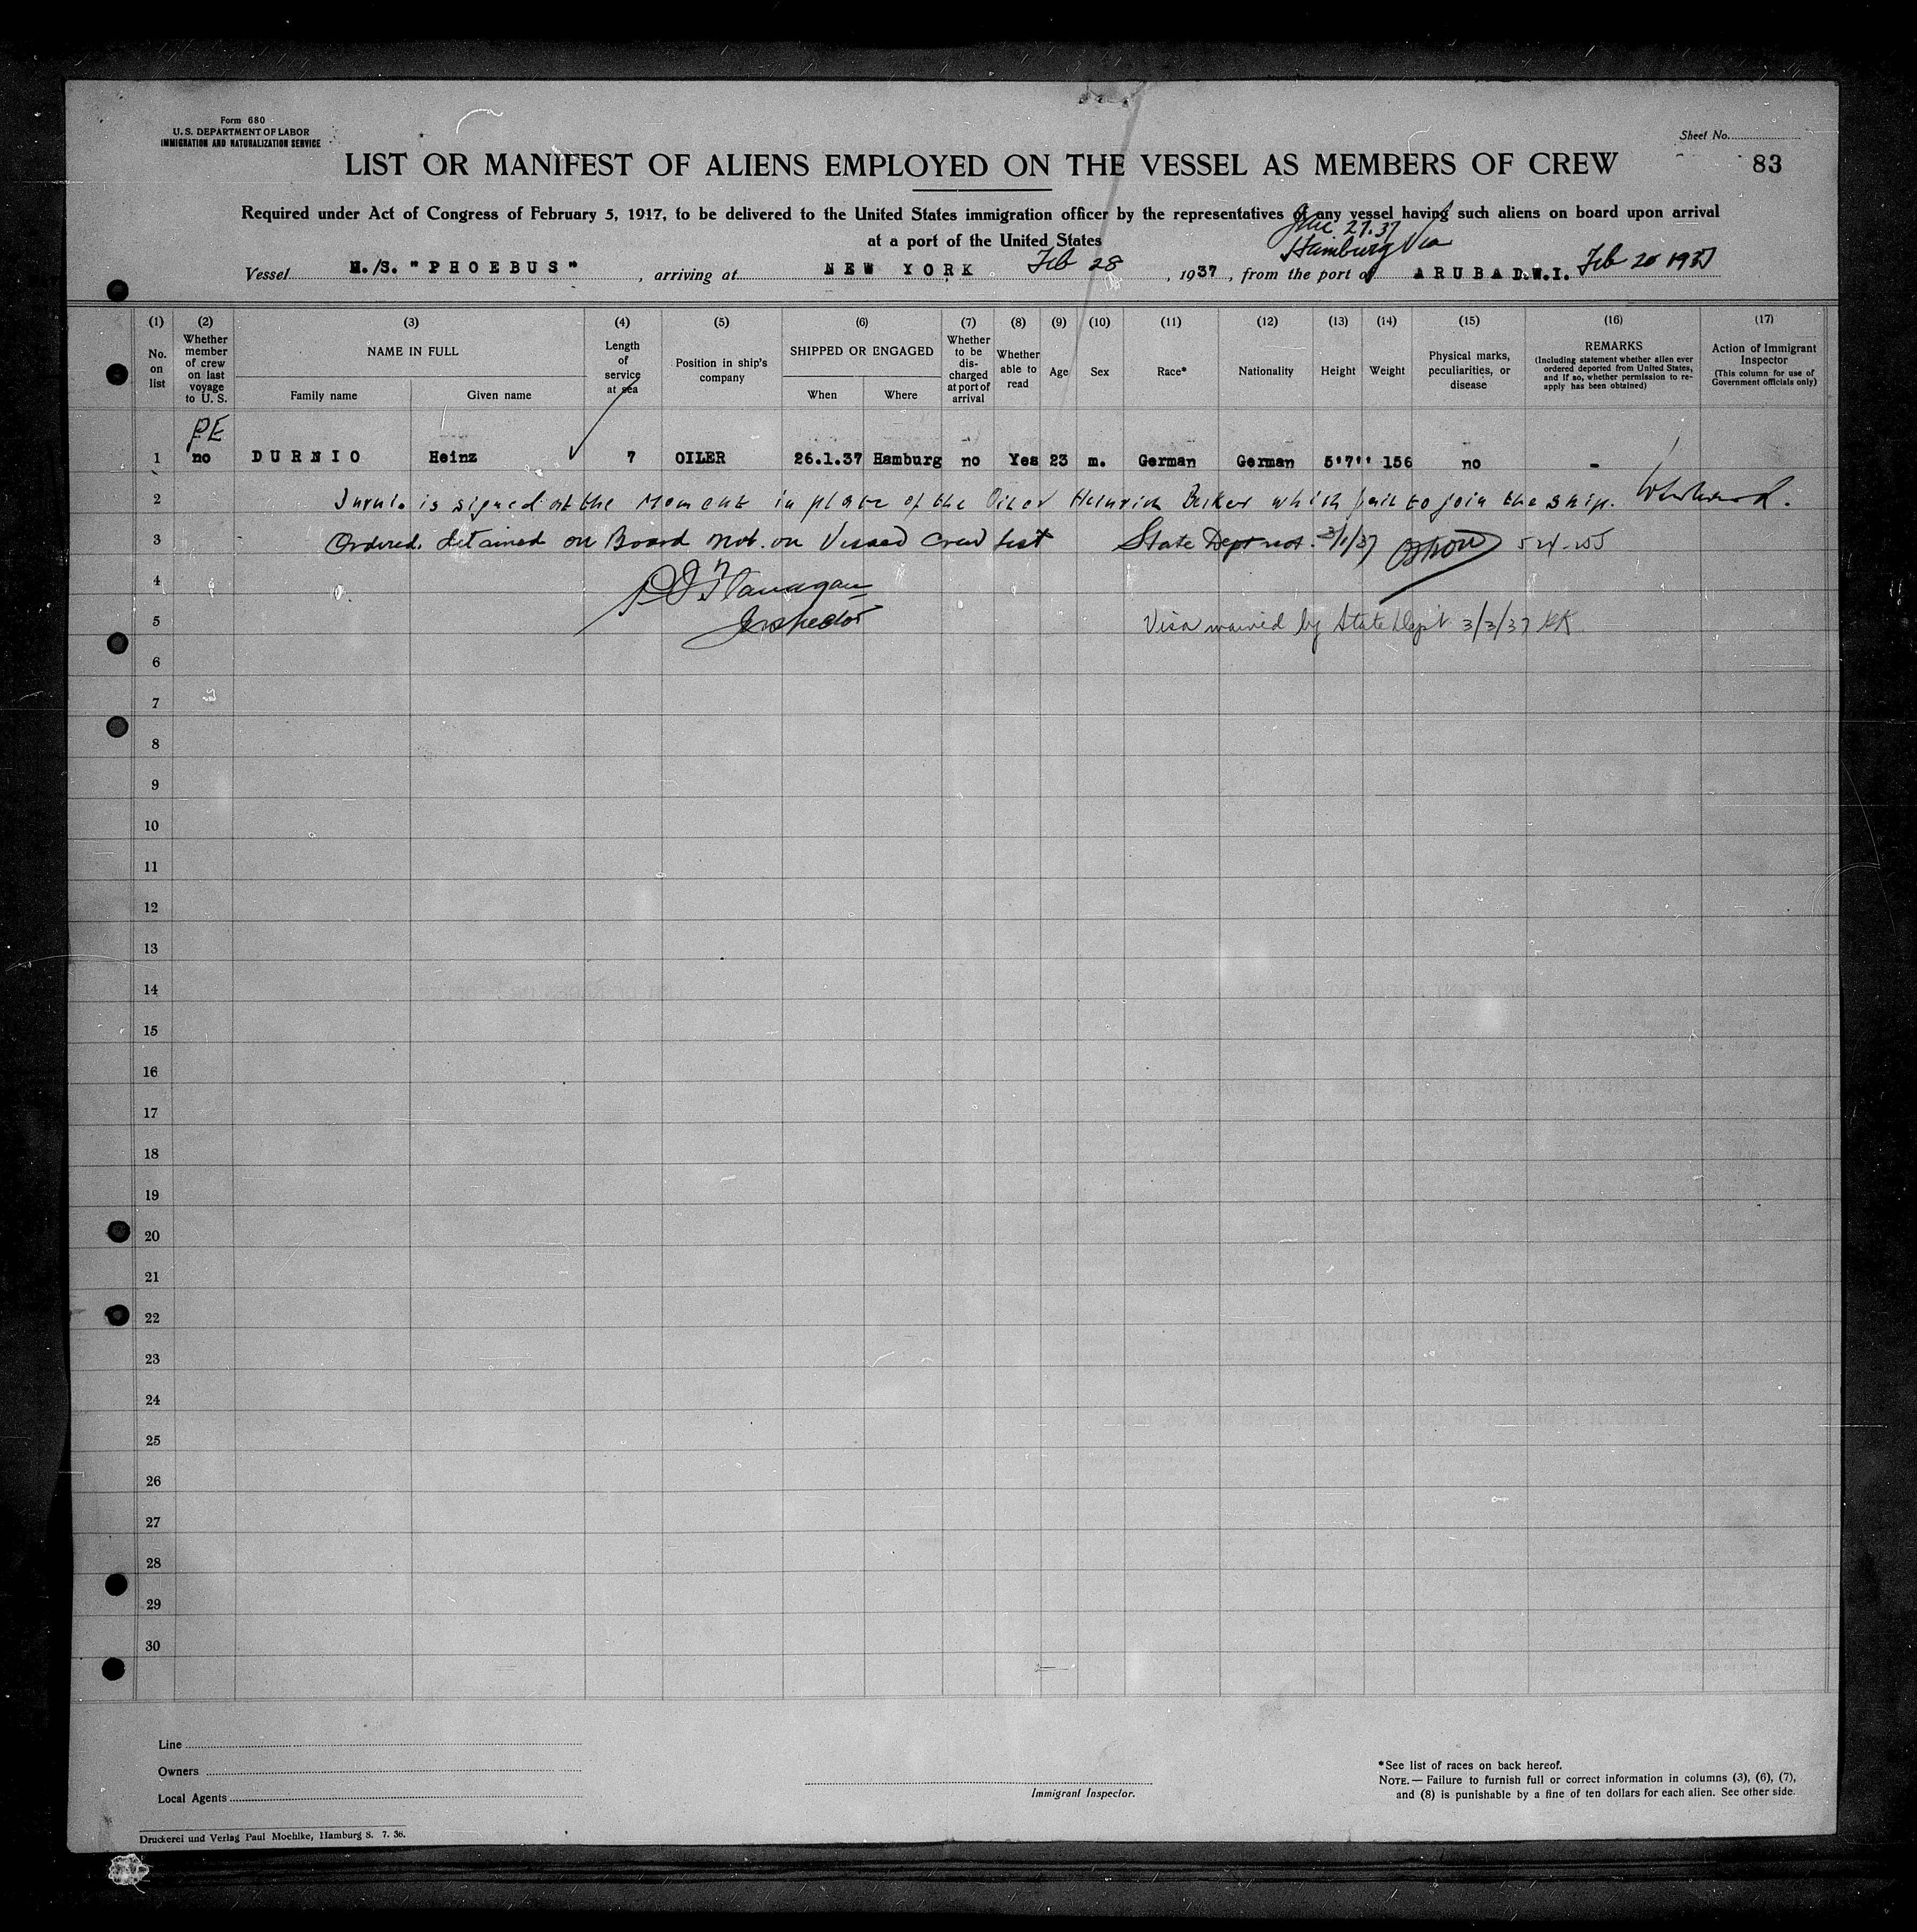 Form 680
U. S. DEPARTMENT OF LABOR
IMMIGRATION AND NATURALIZATION SERVICE
Sheet No.
LIST OR MANIFEST OF ALIENS EMPLOYED ON THE VESSEL AS MEMBERS OF CREW
83
Required under Act of Congress of February 5, 1917, to be delivered to the United States immigration officer by the representatives of any vessel having such aliens on board upon arrival
at a port of the United States
27.37
Hamburg Via
Vessel M./S. "PHOEBUS", arriving at NEW YORK Feb 28, 1937, from the port of ARUBA D.W.I. Feb 20 1937
(1) (2) (3) (4) (5) (6) (7) (8) (9) (10) (11) (12) (13) (14) (15) (16) (17)
No. on list
Whether member of crew on last voyage to U. S.
NAME IN FULL
Family name
Given name
Length of service at sea
Position in ship's company
SHIPPED OR ENGAGED
When
Where
Whether to be discharged at port of arrival
Whether able to read
Age
Sex
Race*
Nationality
Height
Weight
Physical marks, peculiarities, or disease
REMARKS
(Including statement whether alien ever ordered deported from United States, and if so, whether permission to re-apply has been obtained)
Action of Immigrant Inspector
(This column for use of Government officials only)
PE
1 no DURNIO Heinz 7 OILER 26.1.37 Hamburg no Yes 23 m. German German 5'7'' 156 no -
2 Durnio is signed at the Moment in place of the Oiler Heinrich Becker which fail to join the ship.
3 Ordered detained on Board not on Vissed Crew list State Dept not. 3/1/37
4 Flanagan
5 Inspector Visa waived by State Dep't 3/3/37
6
7
8
9
10
11
12
13
14
15
16
17
18
19
20
21
22
23
24
25
26
27
28
29
30
Line
Owners
Local Agents
Immigrant Inspector.
*See list of races on back hereof.
NOTE.— Failure to furnish full or correct information in columns (3), (6), (7),
and (8) is punishable by a fine of ten dollars for each alien. See other side.
Druckerei und Verlag Paul Moehlke, Hamburg 8. 7. 36.